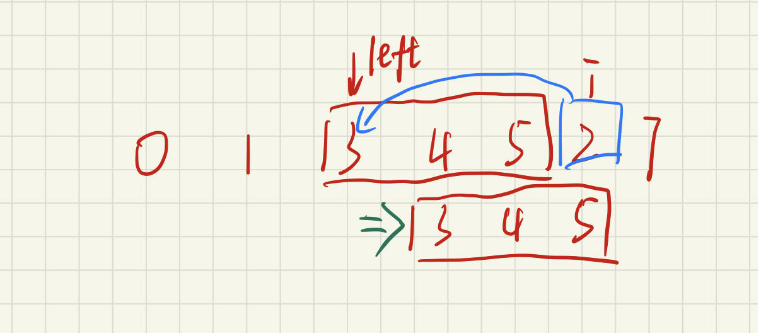 left
i
0 1 3 4 5 2 7
⇒ 3 4 5